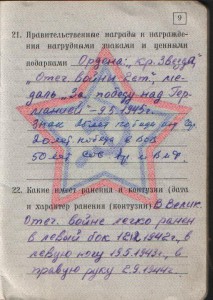 9
21. Правительственные награды и награжде-
ния нагрудными знаками и ценными
подарками Ордена „Кр. Звезда",
Отеч. войны II ст" ме-
даль „За победу над Гер-
манией" – 9.5.1945г.
Знак
20 лет победы в ВОВ
50 лет
22. Какие имеет ранения и контузии (дата
и характер ранения (контузии) В Велик.
Отеч. войне легко ранен
в левый бок 1942г., в
левую ногу 1943г., в
правую руку 2.9.1944г.